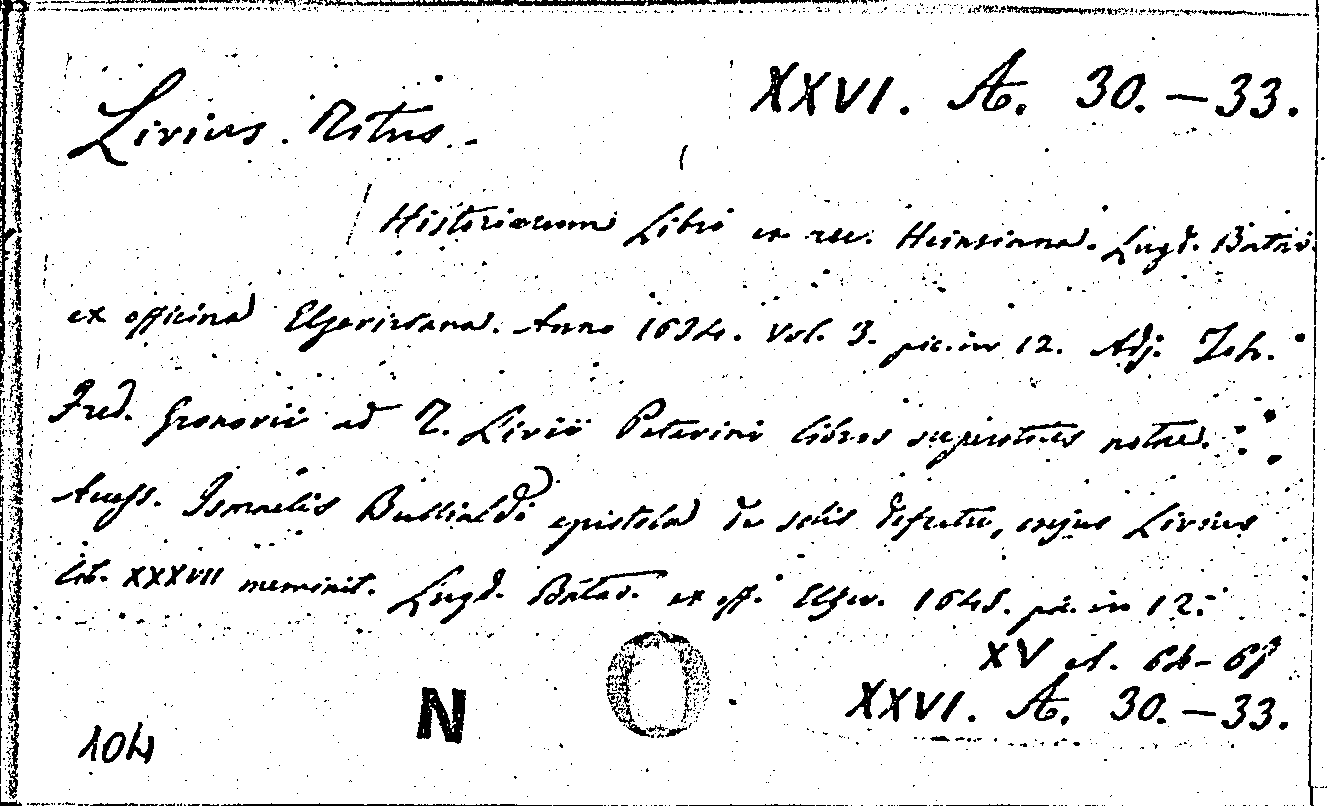 XXVI. A. 30. – 33.
Livius. Titus.
Historiarum Libri ex rec. Heinsiana. Lugd. Batav.
ex officina Elzeviriana. Anno 1634. Vol. 3. pic. in 12. Adj. Joh.
Fred. Gronovii ad T. Livii Patavini libros superstites notae.
Access. Ismaelis Bullialdi epistola de solis defectu, cujus Livius
lib. XXXVII meminit. Lugd. Batav. ex off. Elzev. 1645. pic. in 12.
XV 64-67
XXVI. A. 30. – 33.
N
104